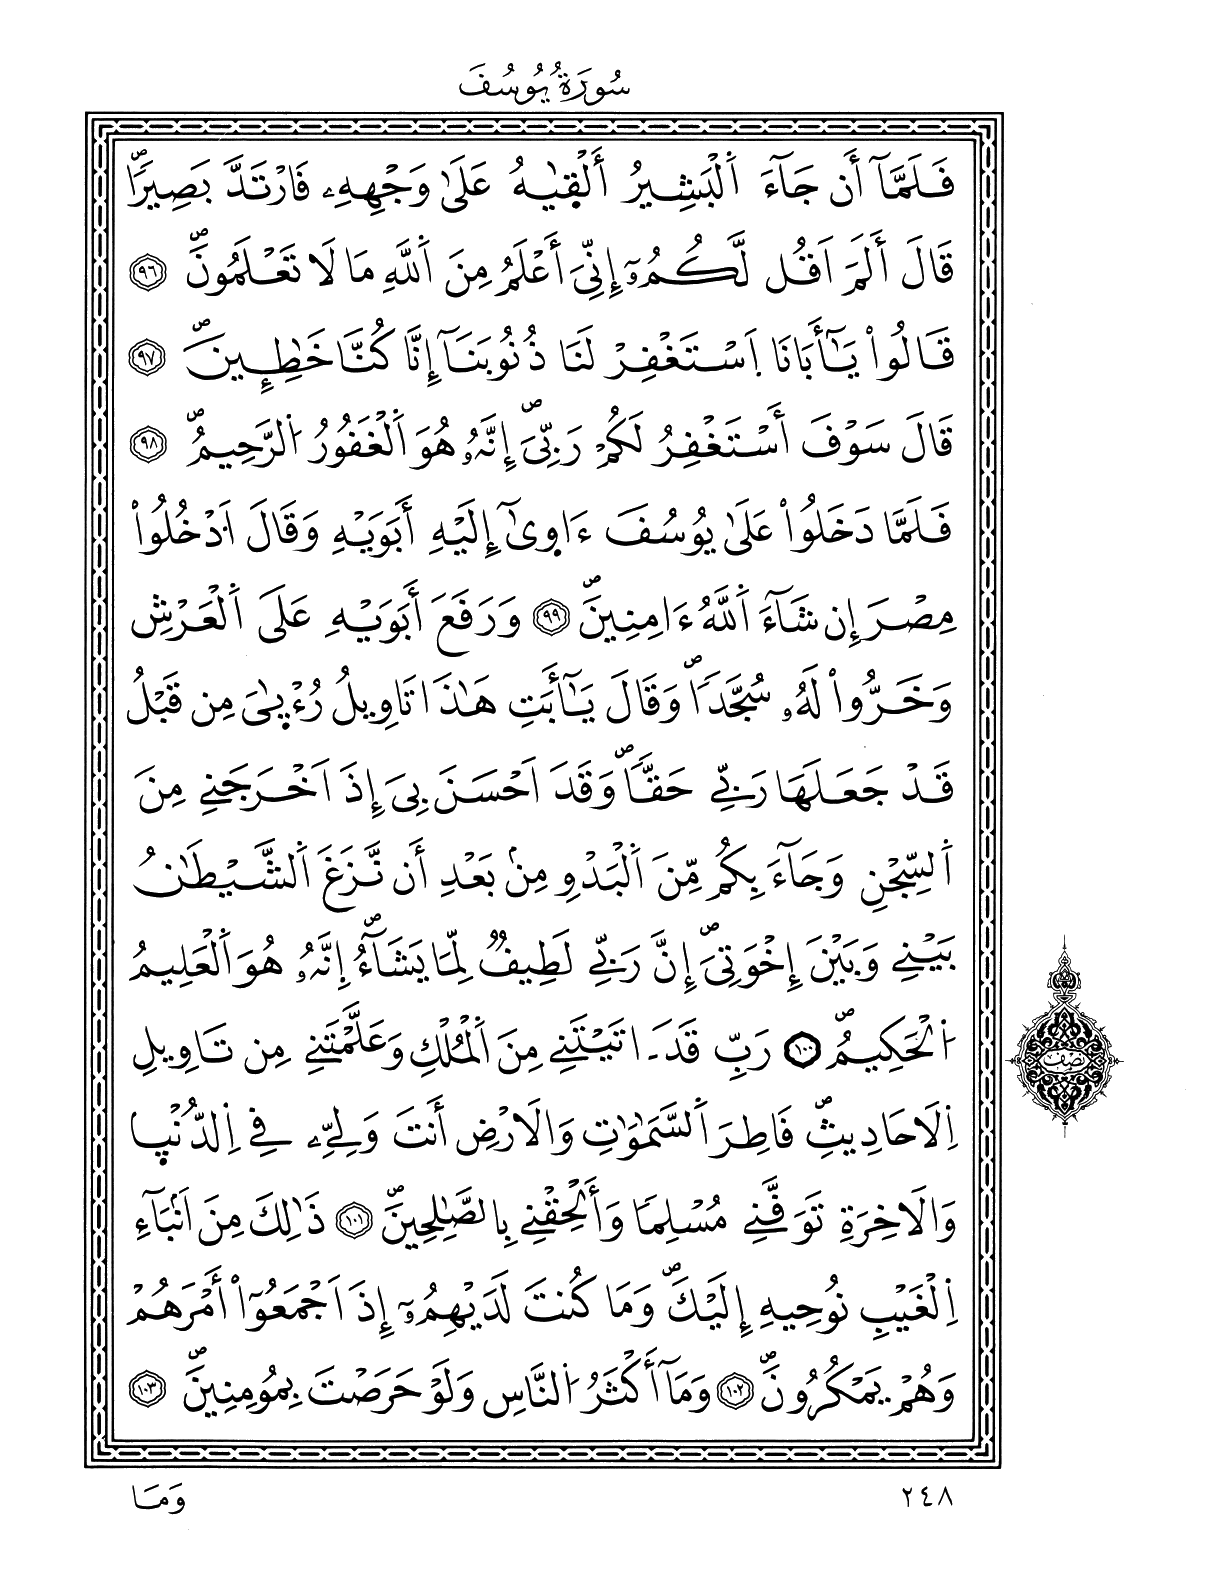 سُورَةُ يُوسُفَ
فَلَمَّآ أَن جَآءَ اَ۬لْبَشِيرُ أَلْق۪يٰهُ عَلَيٰ وَجْهِهِۦ فَارْتَدَّ بَصِيراٗۖ
قَالَ أَلَمَ اَقُل لَّكُمُۥٓ إِنِّيَ أَعْلَمُ مِنَ اَ۬للَّهِ مَا لَا تَعْلَمُونَۖ ٩٦
قَالُواْ يَٰٓأَبَانَا اَ۪سْتَغْفِرْ لَنَا ذُنُوبَنَآ إِنَّا كُنَّا خَٰطِـِٕينَۖ ٩٧
قَالَ سَوْفَ أَسْتَغْفِرُ لَكُمْ رَبِّيَۖ إِنَّهُۥ هُوَ اَ۬لْغَفُورُ اُ۬لرَّحِيمُۖ ٩٨
فَلَمَّا دَخَلُواْ عَلَيٰ يُوسُفَ ءَاو۪يٰٓ إِلَيْهِ أَبَوَيْهِ وَقَالَ اَ۟دْخُلُواْ
مِصْرَ إِن شَآءَ اَ۬للَّهُ ءَامِنِينَۖ ٩٩ وَرَفَعَ أَبَوَيْهِ عَلَي اَ۬لْعَرْشِ
وَخَرُّواْ لَهُۥ سُجَّداٗۖ وَقَالَ يَٰٓأَبَتِ هَٰذَا تَاوِيلُ رُءْيٰ۪يَ مِن قَبْلُ
قَدْ جَعَلَهَا رَبِّے حَقّاٗۖ وَقَدَ اَحْسَنَ بِيَ إِذَ اَخْرَجَنِے مِنَ
اَ۬لسِّجْنِ وَجَآءَ بِكُم مِّنَ اَ۬لْبَدْوِ مِنۢ بَعْدِ أَن نَّزَغَ اَ۬لشَّيْطَٰنُ
بَيْنِے وَبَيْنَ إِخْوَتِيَۖ إِنَّ رَبِّے لَطِيفٞ لِّمَا يَشَآءُۖ اِنَّهُۥ هُوَ اَ۬لْعَلِيمُ
اُ۬لْحَكِيمُۖ ١٠٠ رَبِّ قَدَ اٰتَيْتَنِے مِنَ اَ۬لْمُلْكِ وَعَلَّمْتَنِے مِن تَاوِيلِ
اِ۬لَاحَادِيثِۖ فَاطِرَ اَ۬لسَّمَٰوَٰتِ وَالَارْضِ أَنتَ وَلِيِّۦ فِے اِ۬لدُّنْي۪ا
وَالَاخِرَةِ تَوَفَّنِے مُسْلِماٗ وَأَلْحِقْنِے بِالصَّٰلِحِينَۖ ١٠١ ذَٰلِكَ مِنَ اَنۢبَآءِ
اِ۬لْغَيْبِ نُوحِيهِ إِلَيْكَۖ وَمَا كُنتَ لَدَيْهِمُۥٓ إِذَ اَجْمَعُوٓاْ أَمْرَهُمْ
وَهُمْ يَمْكُرُونَۖ ١٠٢ وَمَآ أَكْثَرُ اُ۬لنَّاسِ وَلَوْ حَرَصْتَ بِمُومِنِينَۖ ١٠٣
نصف
٢٤٨
وَمَا